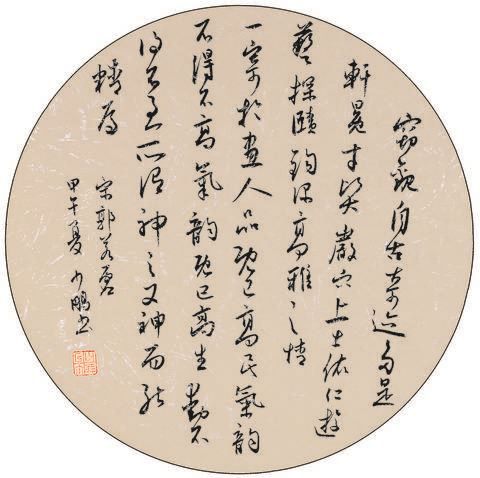 竊觀自古奇迹多是
軒冕才賢巖穴上士依仁遊
藝探賾鈎深高雅之情
一寄於畫人品既已高矣氣韵
不得不高氣韵既已高生動不
得不至所谓神之又神而能
精焉
宋郭若虚
甲午夏少鵬书